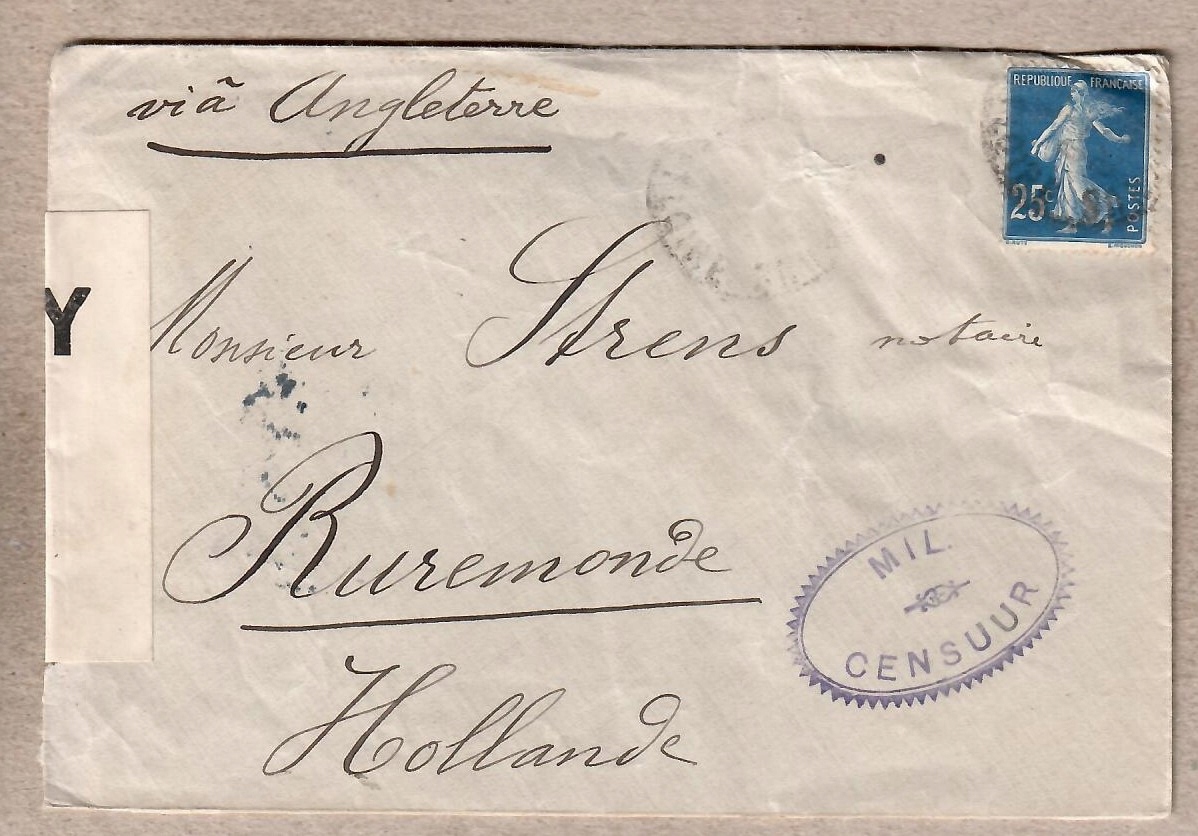 viã Angleterre
REPUBLIQUE FRANÇAISE
25c
POSTES
Y
Monsieur Strens notaire
Ruremonde
Hollande
MIL.
CENSUUR